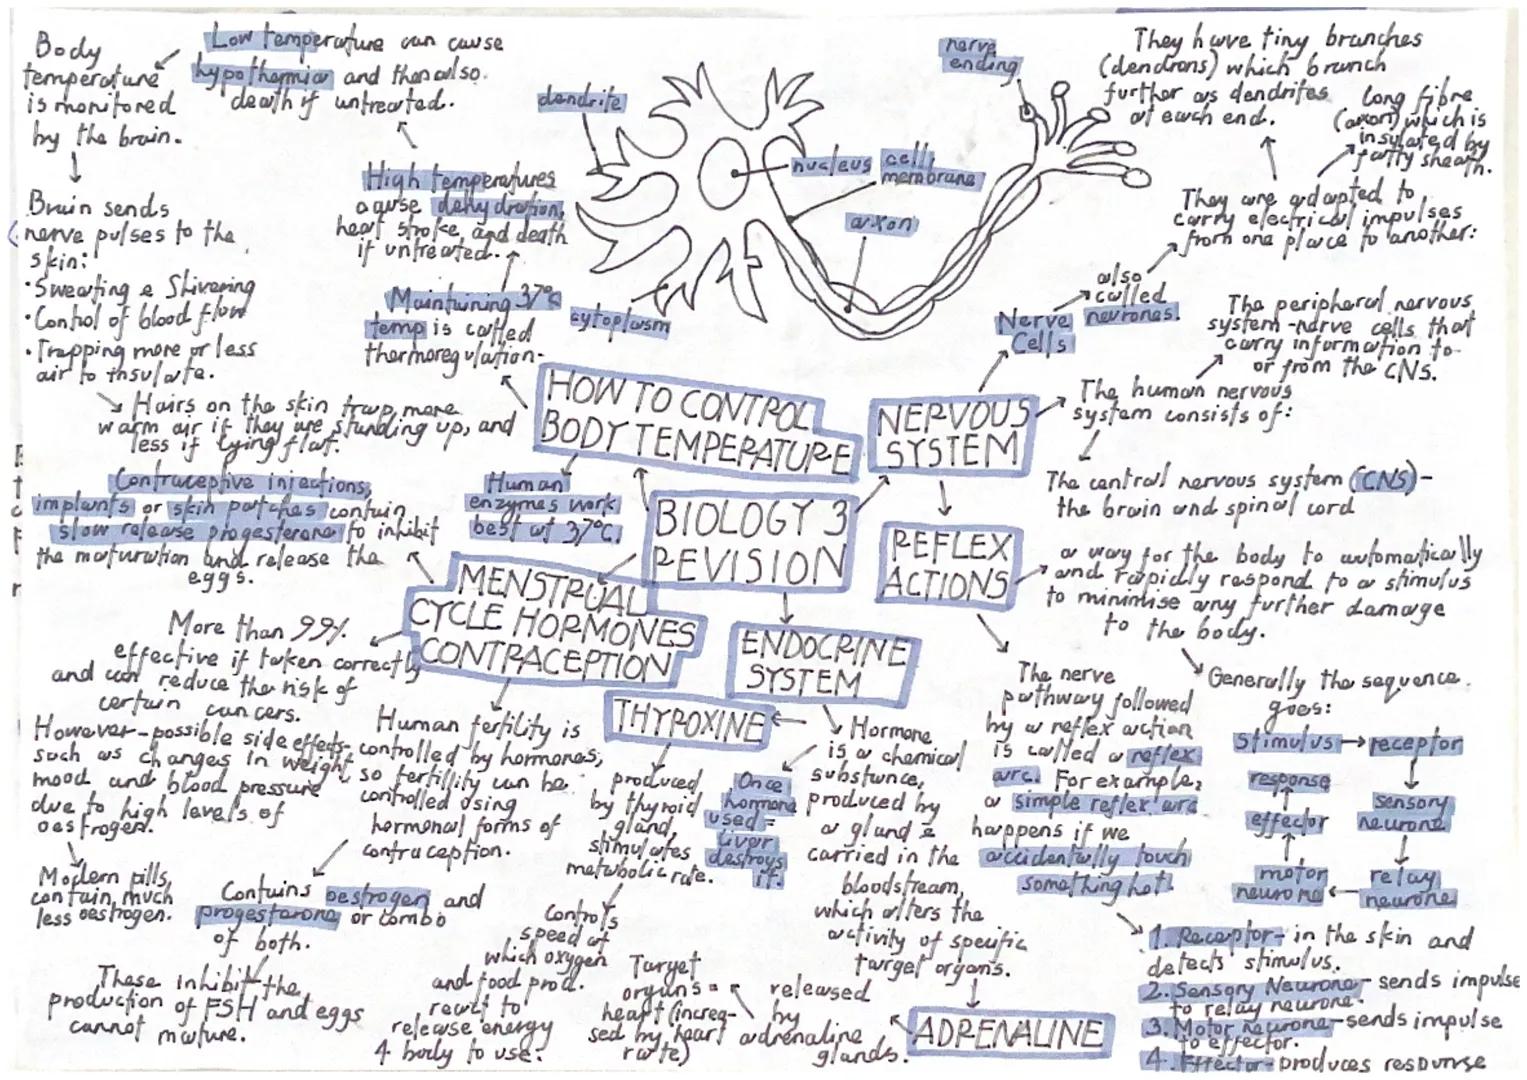 Body
temperature
is monitored
by the brain.
Low temperature can cause
hypothermia and then also
death if untreated.
High temperatures
cause dehydration,
heat stroke, and death
if untreated.
Maintaining 37°C
temp is called
thermoregulation.
Brain sends
nerve pulses to the
skin:
• Sweating & Shivering
• Control of blood flow
• Trapping more or less
air to insulate.
Hairs on the skin trap more
warm air if they are standing up, and
less if lying flat.
HOW TO CONTROL
BODY TEMPERATURE
Human
enzymes work
best at 37°C.
dendrite
nucleus
cell
membrane
axon
cytoplasm
nerve
ending
They have tiny branches
(dendrons) which branch
further as dendrites
at each end.
Long fibre
(axon) which is
insulated by
fatty sheath.
They are adapted to
carry electrical impulses
from one place to another:
also
called
neurones.
Nerve
Cells
NERVOUS
SYSTEM
The human nervous
system consists of:
The peripheral nervous
system - nerve cells that
carry information to
or from the CNS.
The central nervous system (CNS) -
the brain and spinal cord
BIOLOGY 3
REVISION
REFLEX
ACTIONS
a way for the body to automatically
and rapidly respond to a stimulus
to minimise any further damage
to the body.
Generally the sequence
goes:
stimulus → receptor
sensory
neurone
relay
neurone
motor
neurone
effector
response
The nerve
pathway followed
by a reflex action
is called a reflex
arc. For example,
a simple reflex arc
happens if we
accidentally touch
something hot!
1. Receptor - in the skin and
detects stimulus.
2. Sensory Neurone - sends impulse
to relay neurone.
3. Motor neurone - sends impulse
to effector.
4. Effector - produces response
MENSTRUAL
CYCLE HORMONES
CONTRACEPTION
Contraceptive injections,
implants or skin patches contain
slow release progesterone to inhibit
the maturation and release the
eggs.
More than 99%
effective if taken correctly
and can reduce the risk of
certain cancers.
However - possible side effects
such as changes in weight,
mood and blood pressure
due to high levels of
oestrogen.
Modern pills
contain much
less oestrogen.
Human fertility is
controlled by hormones,
so fertility can be
controlled using
hormonal forms of
contraception.
Contains oestrogen and
progesterone or combo
of both.
These inhibit the
production of FSH and eggs
cannot mature.
ENDOCRINE
SYSTEM
Hormone
is a chemical
substance,
produced by
a gland &
carried in the
bloodstream,
which alters the
activity of specific
target organs.
Once
hormone
used =
liver
destroys
it.
THYROXINE
produced
by thyroid
gland,
stimulates
metabolic rate.
Controls
speed at
which oxygen
and food prod.
react to
release energy
4 body to use.
ADRENALINE
released
by
adrenaline
glands.
Target
organs =
heart (increa-
sed by heart
rate)